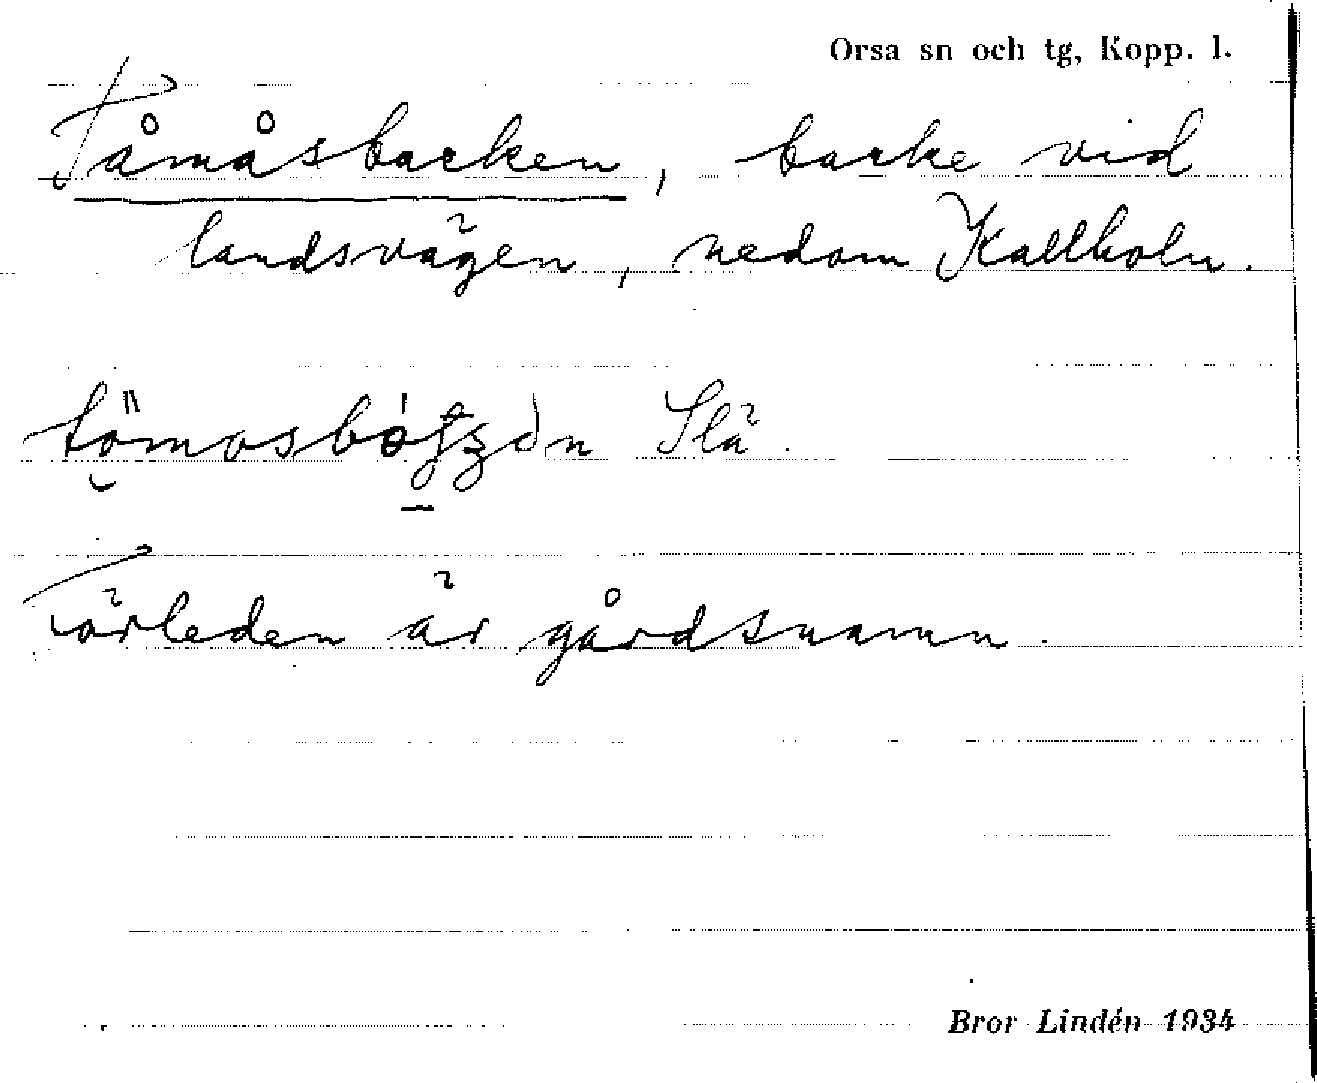 Orsa sn och tg, Kopp. l.
Tåmåsbacken, backe vid
landsvägen, nedom Kallholn.
Slä.
Förleden är gårdsnamn.
Bror Lindén 1934